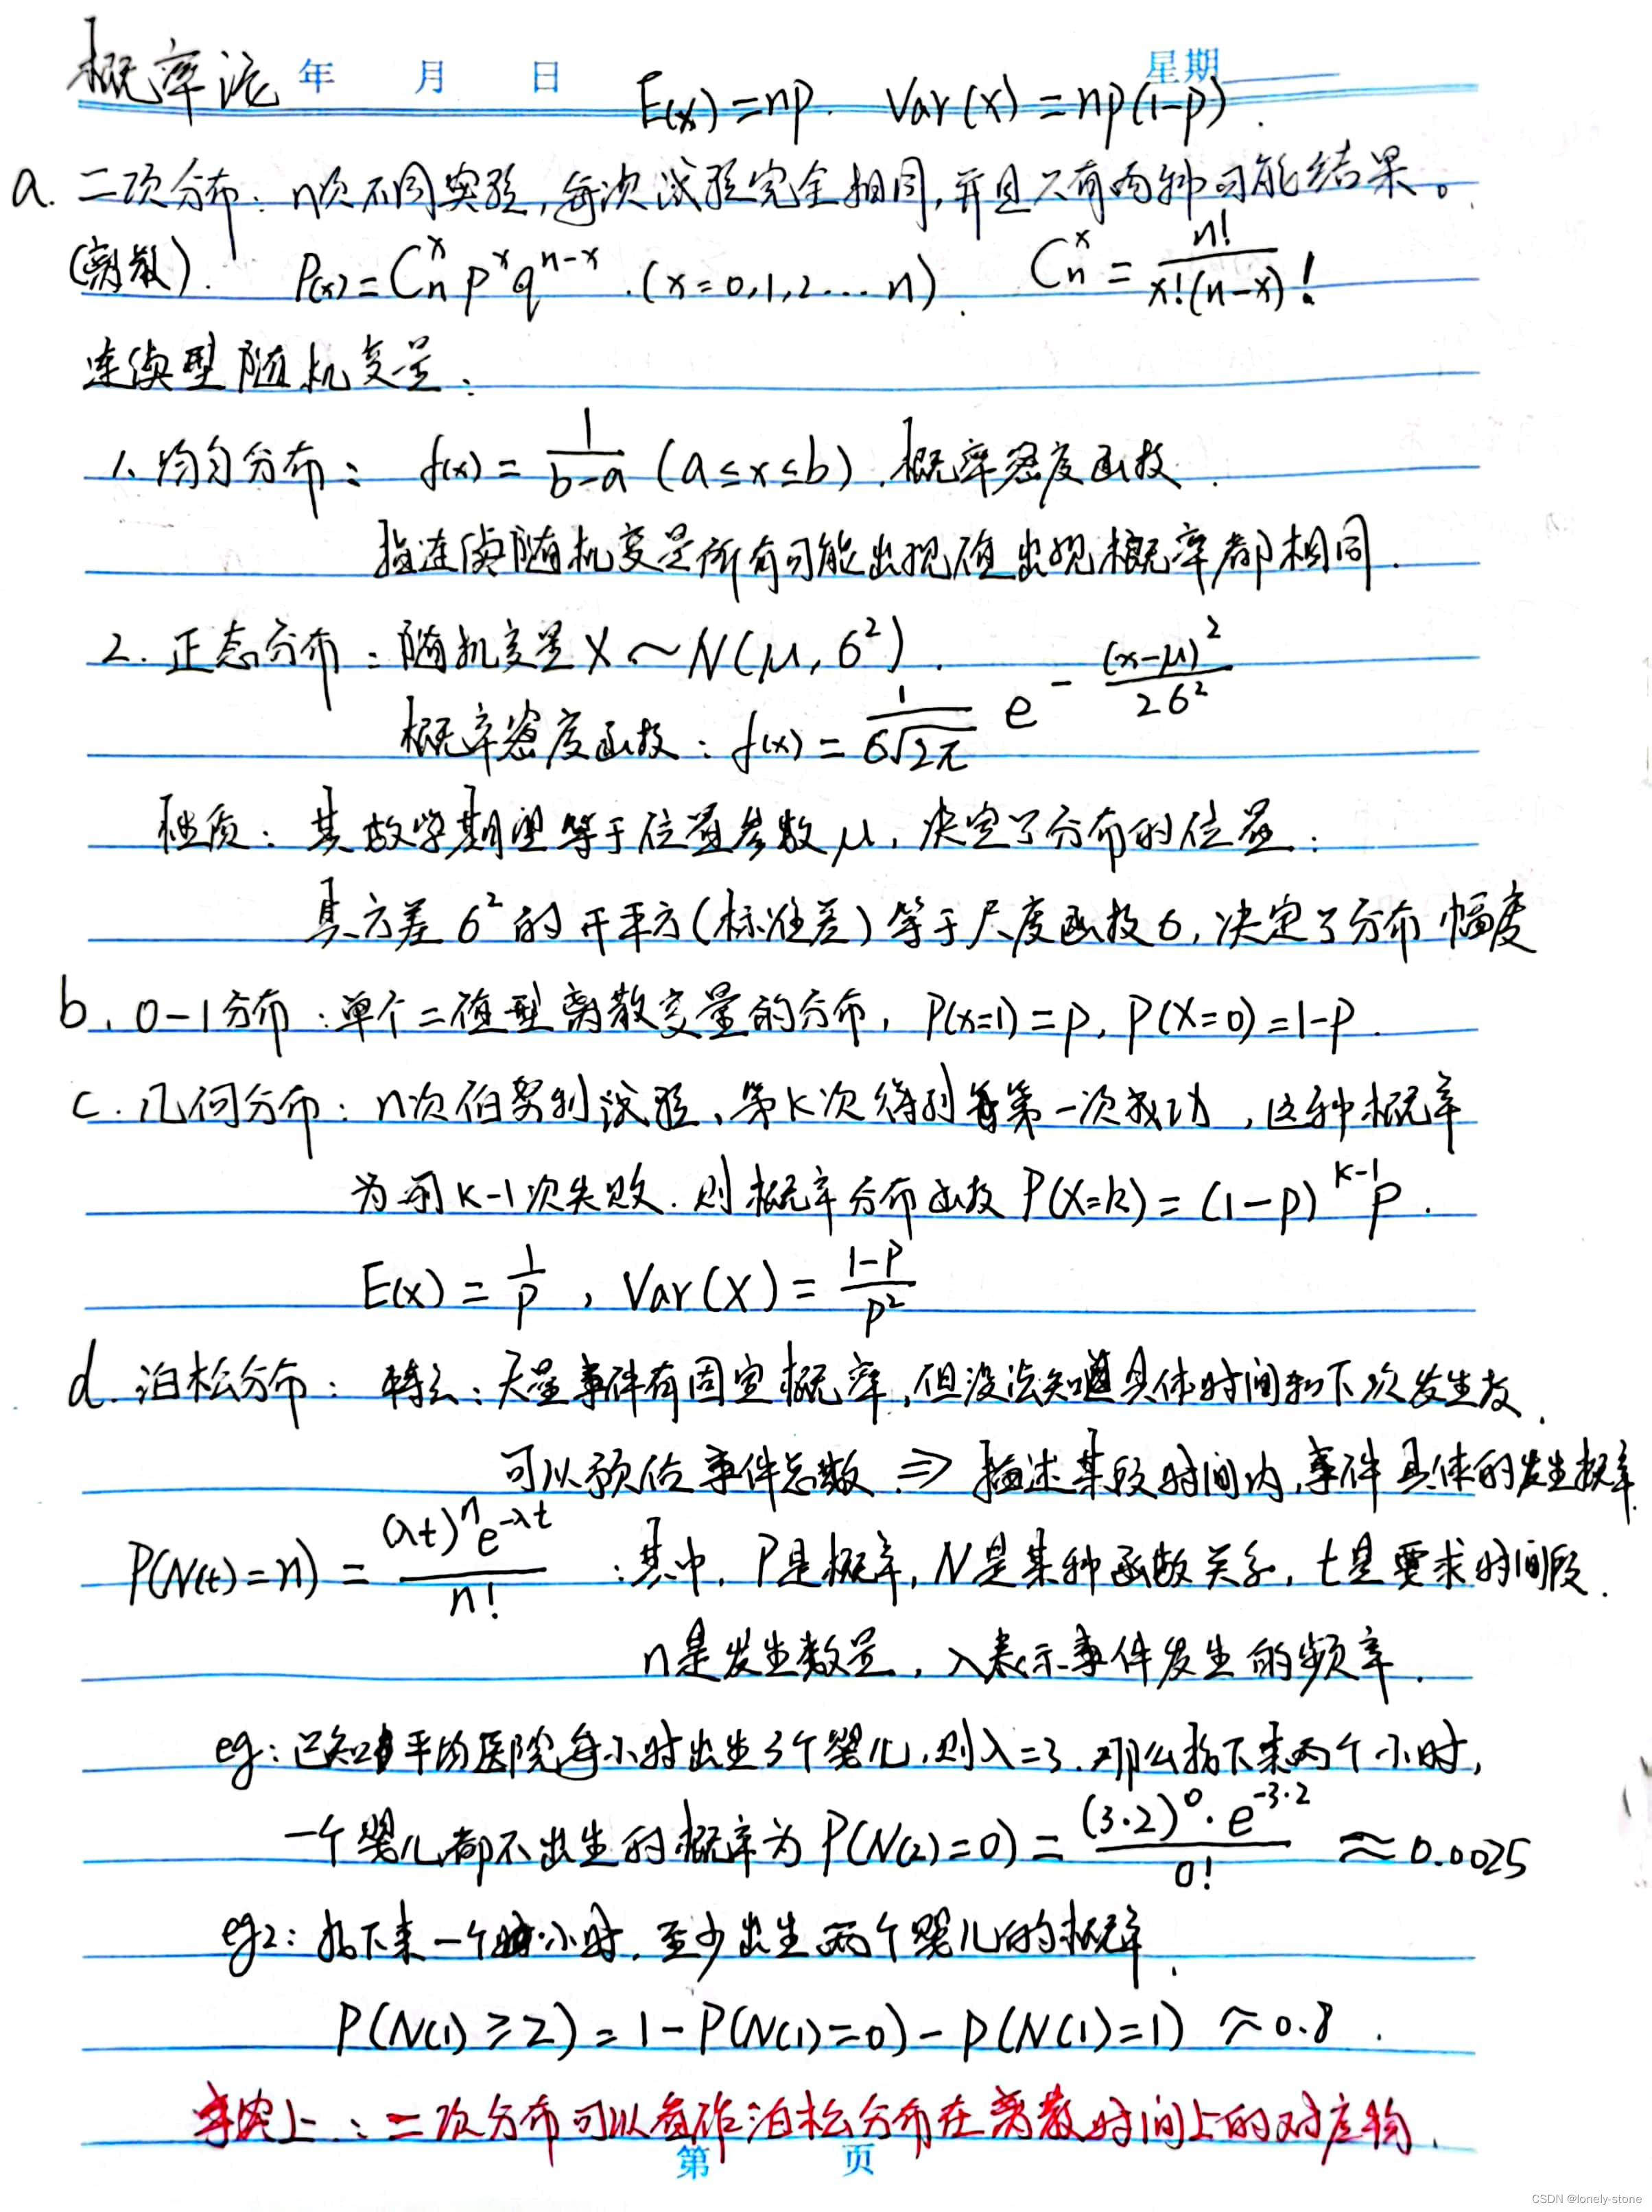 概率论 年 月 日 星期
E(x)=np. Var(x)=np(1-p).
a. 二项分布: n次不同实验,每次试验完全相同,并且只有两种可能结果。
(离散). P(x)=Cₙˣ pˣ qⁿ⁻ˣ.(x=0,1,2...n). Cₙˣ = n!/x!(n-x)!
连续型随机变量:
1. 均匀分布: f(x)= 1/(b-a) (a≤x≤b).概率密度函数.
指连续随机变量所有可能出现值出现概率都相同.
2. 正态分布:随机变量X~N(μ, σ²).
概率密度函数: f(x)= 1/(σ√2π) e^-(x-μ)²/2σ²
性质: 其数学期望等于位置参数μ, 决定了分布的位置:
其方差σ²的开平方(标准差)等于尺度函数σ,决定了分布幅度
b. 0-1分布:单个二值型离散变量的分布, P(x=1)=p, P(X=0)=1-p.
c. 几何分布: n次伯努利试验, 第k次得到第一次成功,这种概率
为前k-1次失败. 则概率分布函数P(X=k)=(1-p)ᵏ⁻¹p.
E(x)= 1/p , Var(X)= (1-p)/p²
d. 泊松分布: 特点: 大量事件有固定概率,但没法知道具体时间和下次发生数.
可以预估事件总数. ⇒ 描述某段时间内,事件具体的发生概率.
P(N(t)=n) = (λt)ⁿe^-λt/n! :其中, P是概率, N是某种函数关系, t是要求时间段.
n是发生数量, λ表示事件发生的频率.
eg: 已知平均医院每小时出生3个婴儿,则λ=3. 那么接下来两个小时,
一个婴儿都不出生的概率为P(N(2)=0)= (3·2)⁰·e^-3·2/0! ≈0.0025
eg2: 接下来一个小时, 至少出生两个婴儿的概率.
P(N(1)≥2)=1-P(N(1)=0)-P(N(1)=1) ≈0.8.
事实上: 二项分布可以看作泊松分布在离散时间上的对应物.
第 页
CSDN @lonely-stone